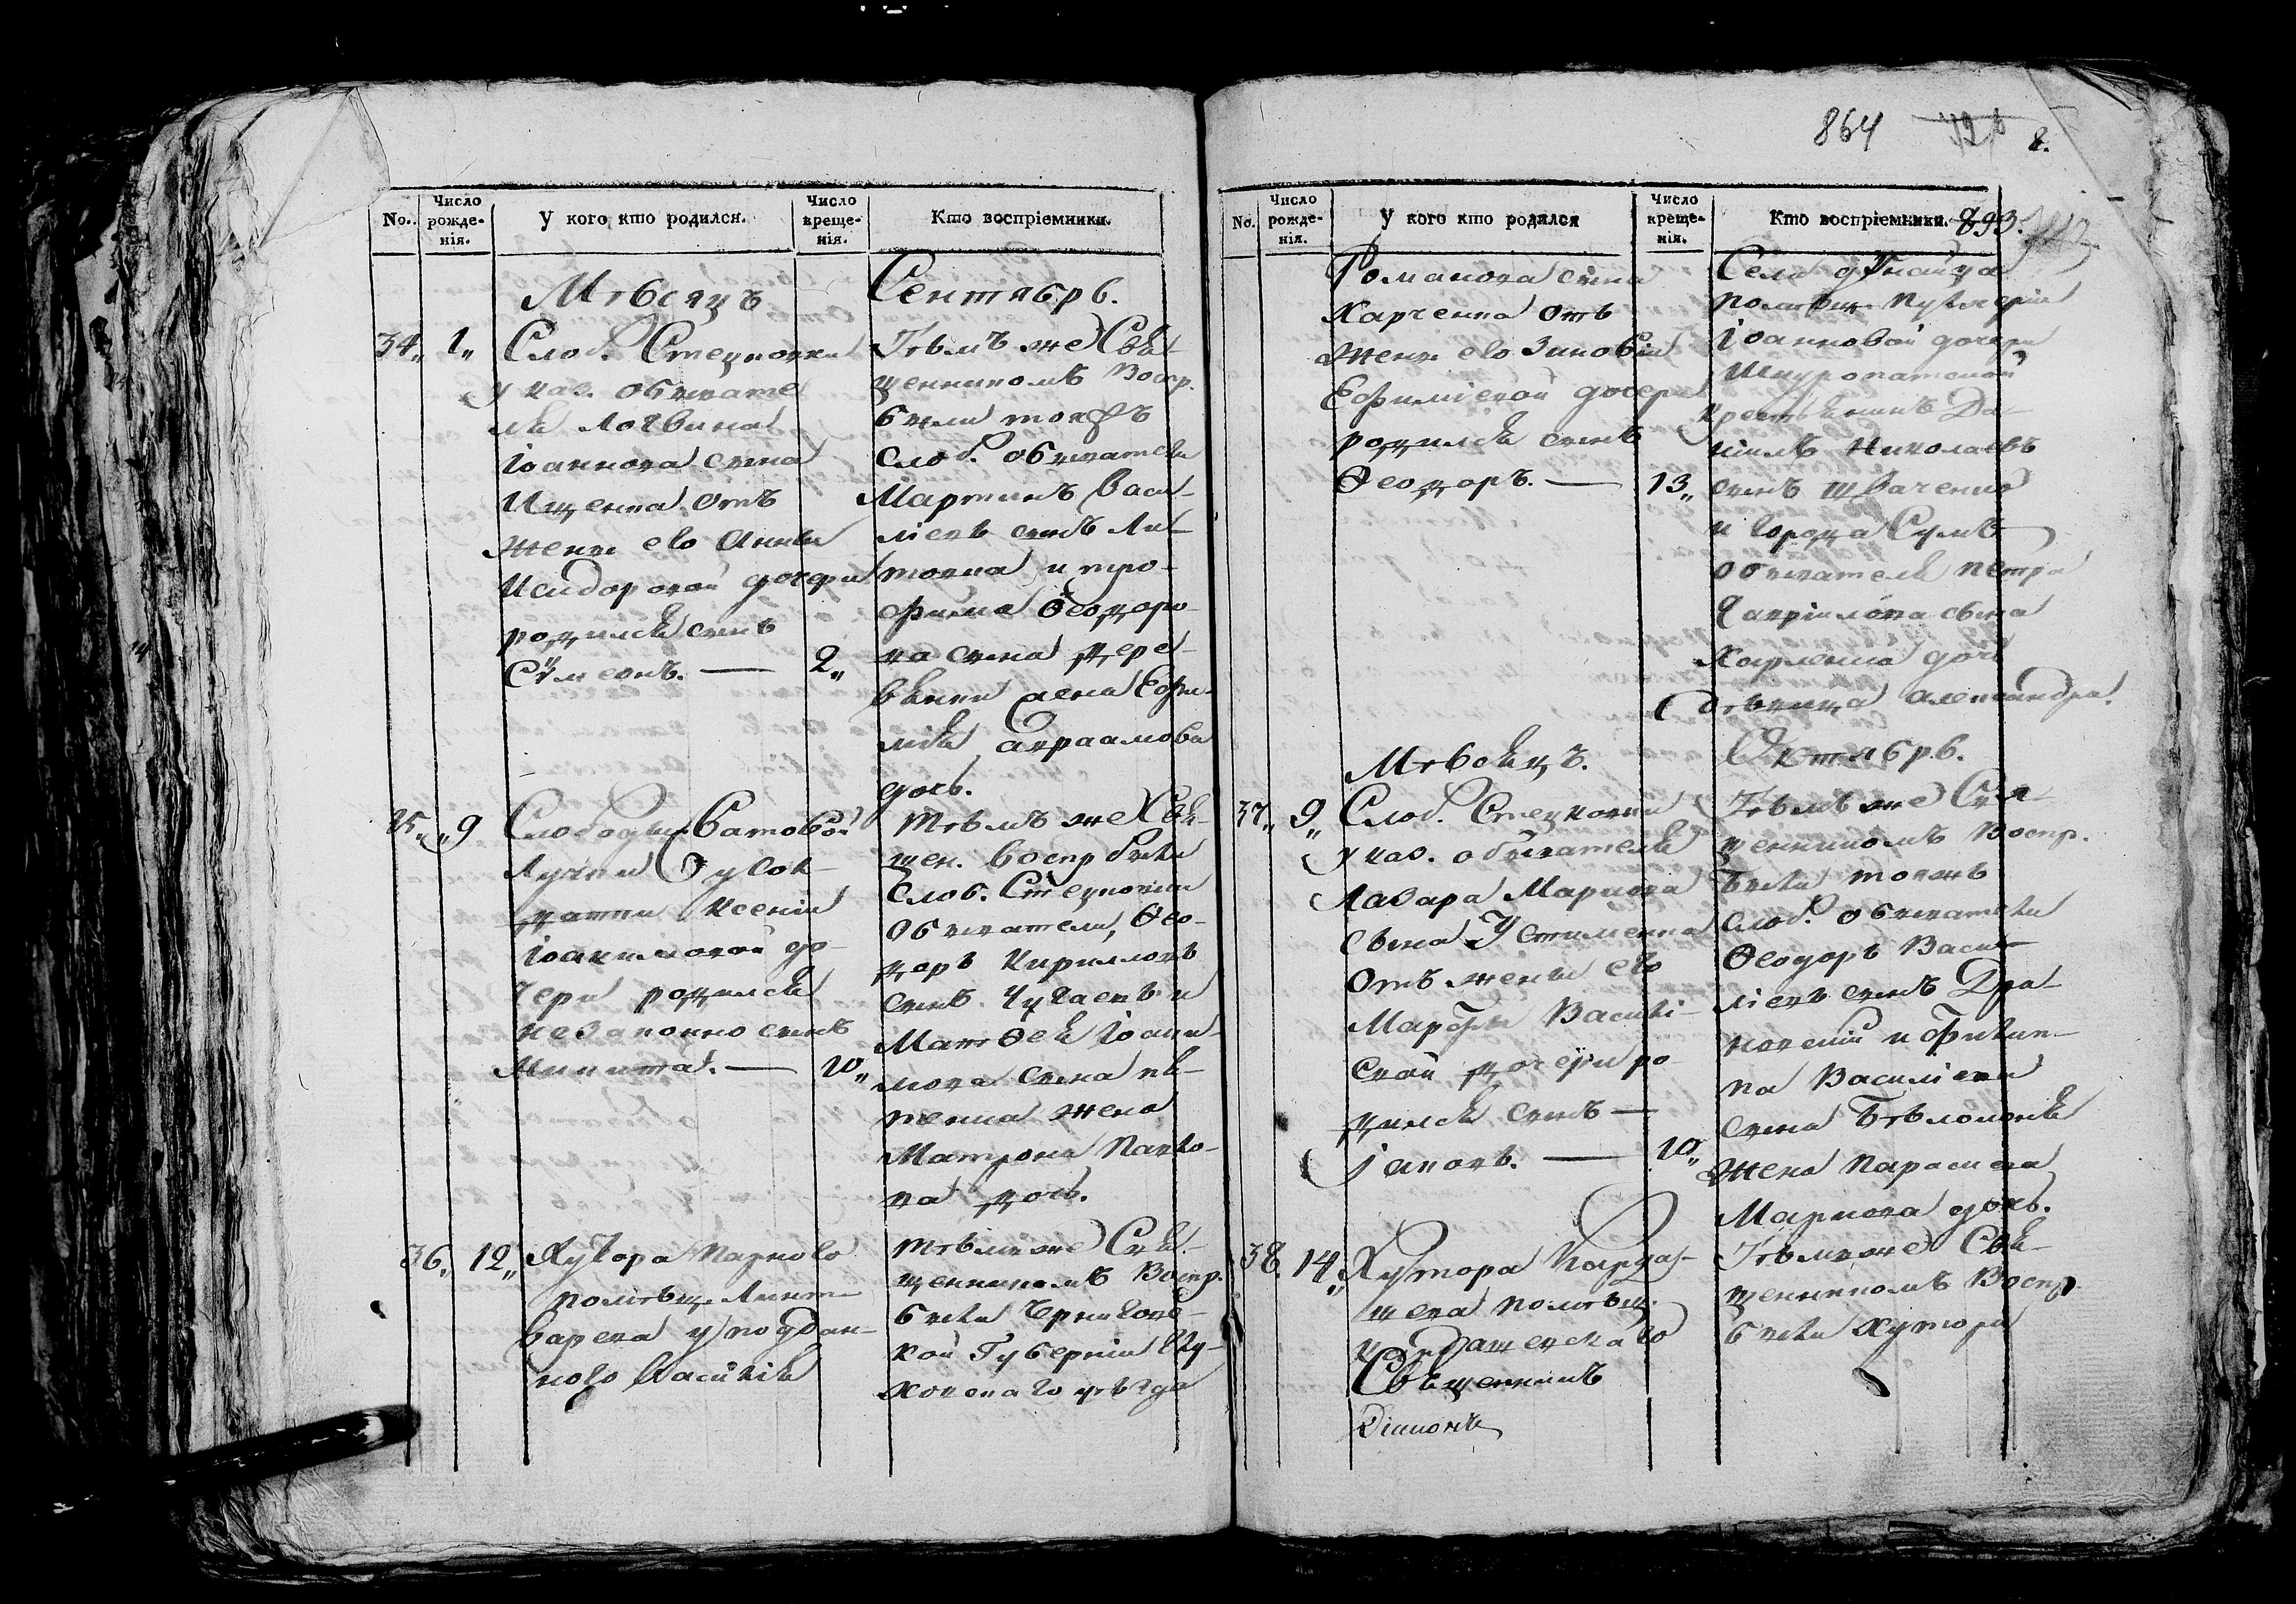 No.
Число рожде-нія.
У кого кто родился.
Число креще-нія.
Кто воспріемники.
Мѣсяцъ Сентябрь.
34,, 1,,
Слоб. Стецковки
у каз. обывате
ля Логвина
Іоаннова сына
Ищенка отъ
жены его Анны
Исидоровой дочери
родился сынъ
Сѵмеонъ. — 2,,
Тѣмъ же Свя-
щенникомъ Воспр.
были тояжъ
слоб. обыватели
Мартинъ Васи-
ліевъ сынъ Ли-
товка и Тро-
фима Ѳеодоро-
ва сына
жена Ефи-
мія Авраамова
дочь.
35,, 9
Слободы
Лучки
Ксеніи
Іоакимовой до-
чери родился
незаконно сынъ
Никита. — 10,,
Тѣмъ же Свя-
щен. воспр были
слоб. Стецковки
обыватели, Ѳео-
доръ Кирилловъ
сынъ Чугаевъ и
Матѳея Іоаки-
мова сына
жена
Матрона Павло-
ва дочь.
36,, 12,,
Хутора
помѣщ. Линт-
варева у поддан-
ного Василія
Тѣмже Свя-
щенникомъ Воспр.
были Черниговс-
кой Губерніи Глу-
ховскаго уѣзда
864
8.
No.
Число рожде-нія.
У кого кто родился
Число креще-нія.
Кто воспріемники.
893.
Романова сына
Харченка отъ
жены его Зиновіи
Ефиміевой дочери
родился сынъ
Ѳеодоръ. — 13,,
Села Дунайца
помѣщ.
Іоанновой дочери
крестьянинъ Да-
ніилъ Николаевъ
сынъ
и города Сумъ
обывателя Петра
Гавріилова сына
Карпенка дочь
дѣвица Александра.
Мѣсяцъ. Октябрь.
37,, 9,,
Слоб. Стецковки
у каз. обывателя
Лазара Маркова
сына Устименка
отъ жены его
Марѳы Василі-
евой дочери ро-
дился сынъ —
Іаковъ. — 10,,
Тѣмъ же Свя-
щенникомъ Воспр.
были тояжъ
слоб. обыватели
Ѳеодоръ Васи-
ліевъ сынъ Дра-
новскій и Филип-
па Василіева
сына Бѣлоконя
жена Параскева
Маркова дочь.
38. 14,,
Хутора Кардаш-
шева помѣщ.
Кардашевскаго
Тѣмже Свя-
щенникомъ Воспр.
были хутора
Священникъ
Діаконъ